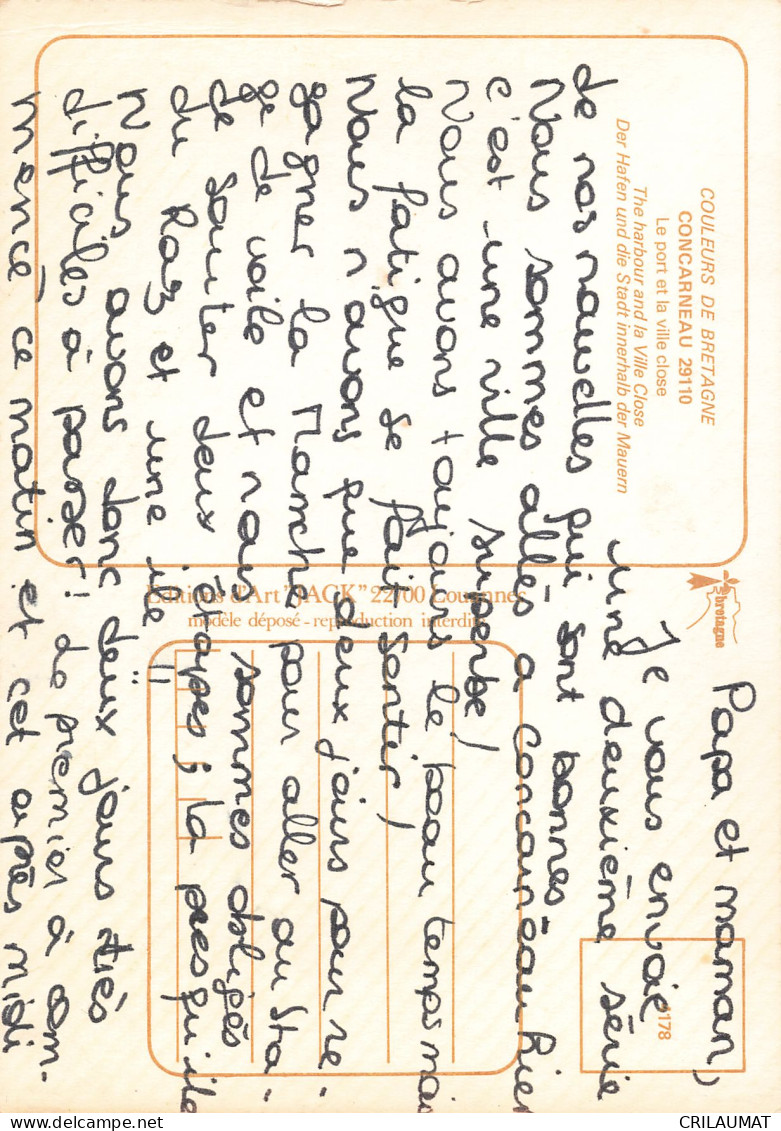 COULEURS DE BRETAGNE
CONCARNEAU 29110
Le port et la ville close
The harbour and la Ville Close
Der Hafen und die Stadt innerhalb der Mauern
bretagne
Editions d'Art "JACK" 22700 Louannec
modèle déposé - reproduction interdite
178
Papa et maman,
Je vous envoie
une deuxième série
de nos nouvelles qui sont bonnes
Nous sommes allés à Concarneau Hier
c'est une ville superbe!
Nous avons toujours le beau temps mais
la fatigue se fait sentir!
Nous n'avons que deux jours pour re-
gagner la Manche pour aller au Sta-
ge de voile et nous sommes obligés
de sauter deux étapes; la presqu'ile
du Raz et une ile!!
Nous avons donc deux jours très
difficiles à passer! le premier à com-
mencé ce matin et cet après midi
CRILAUMAT